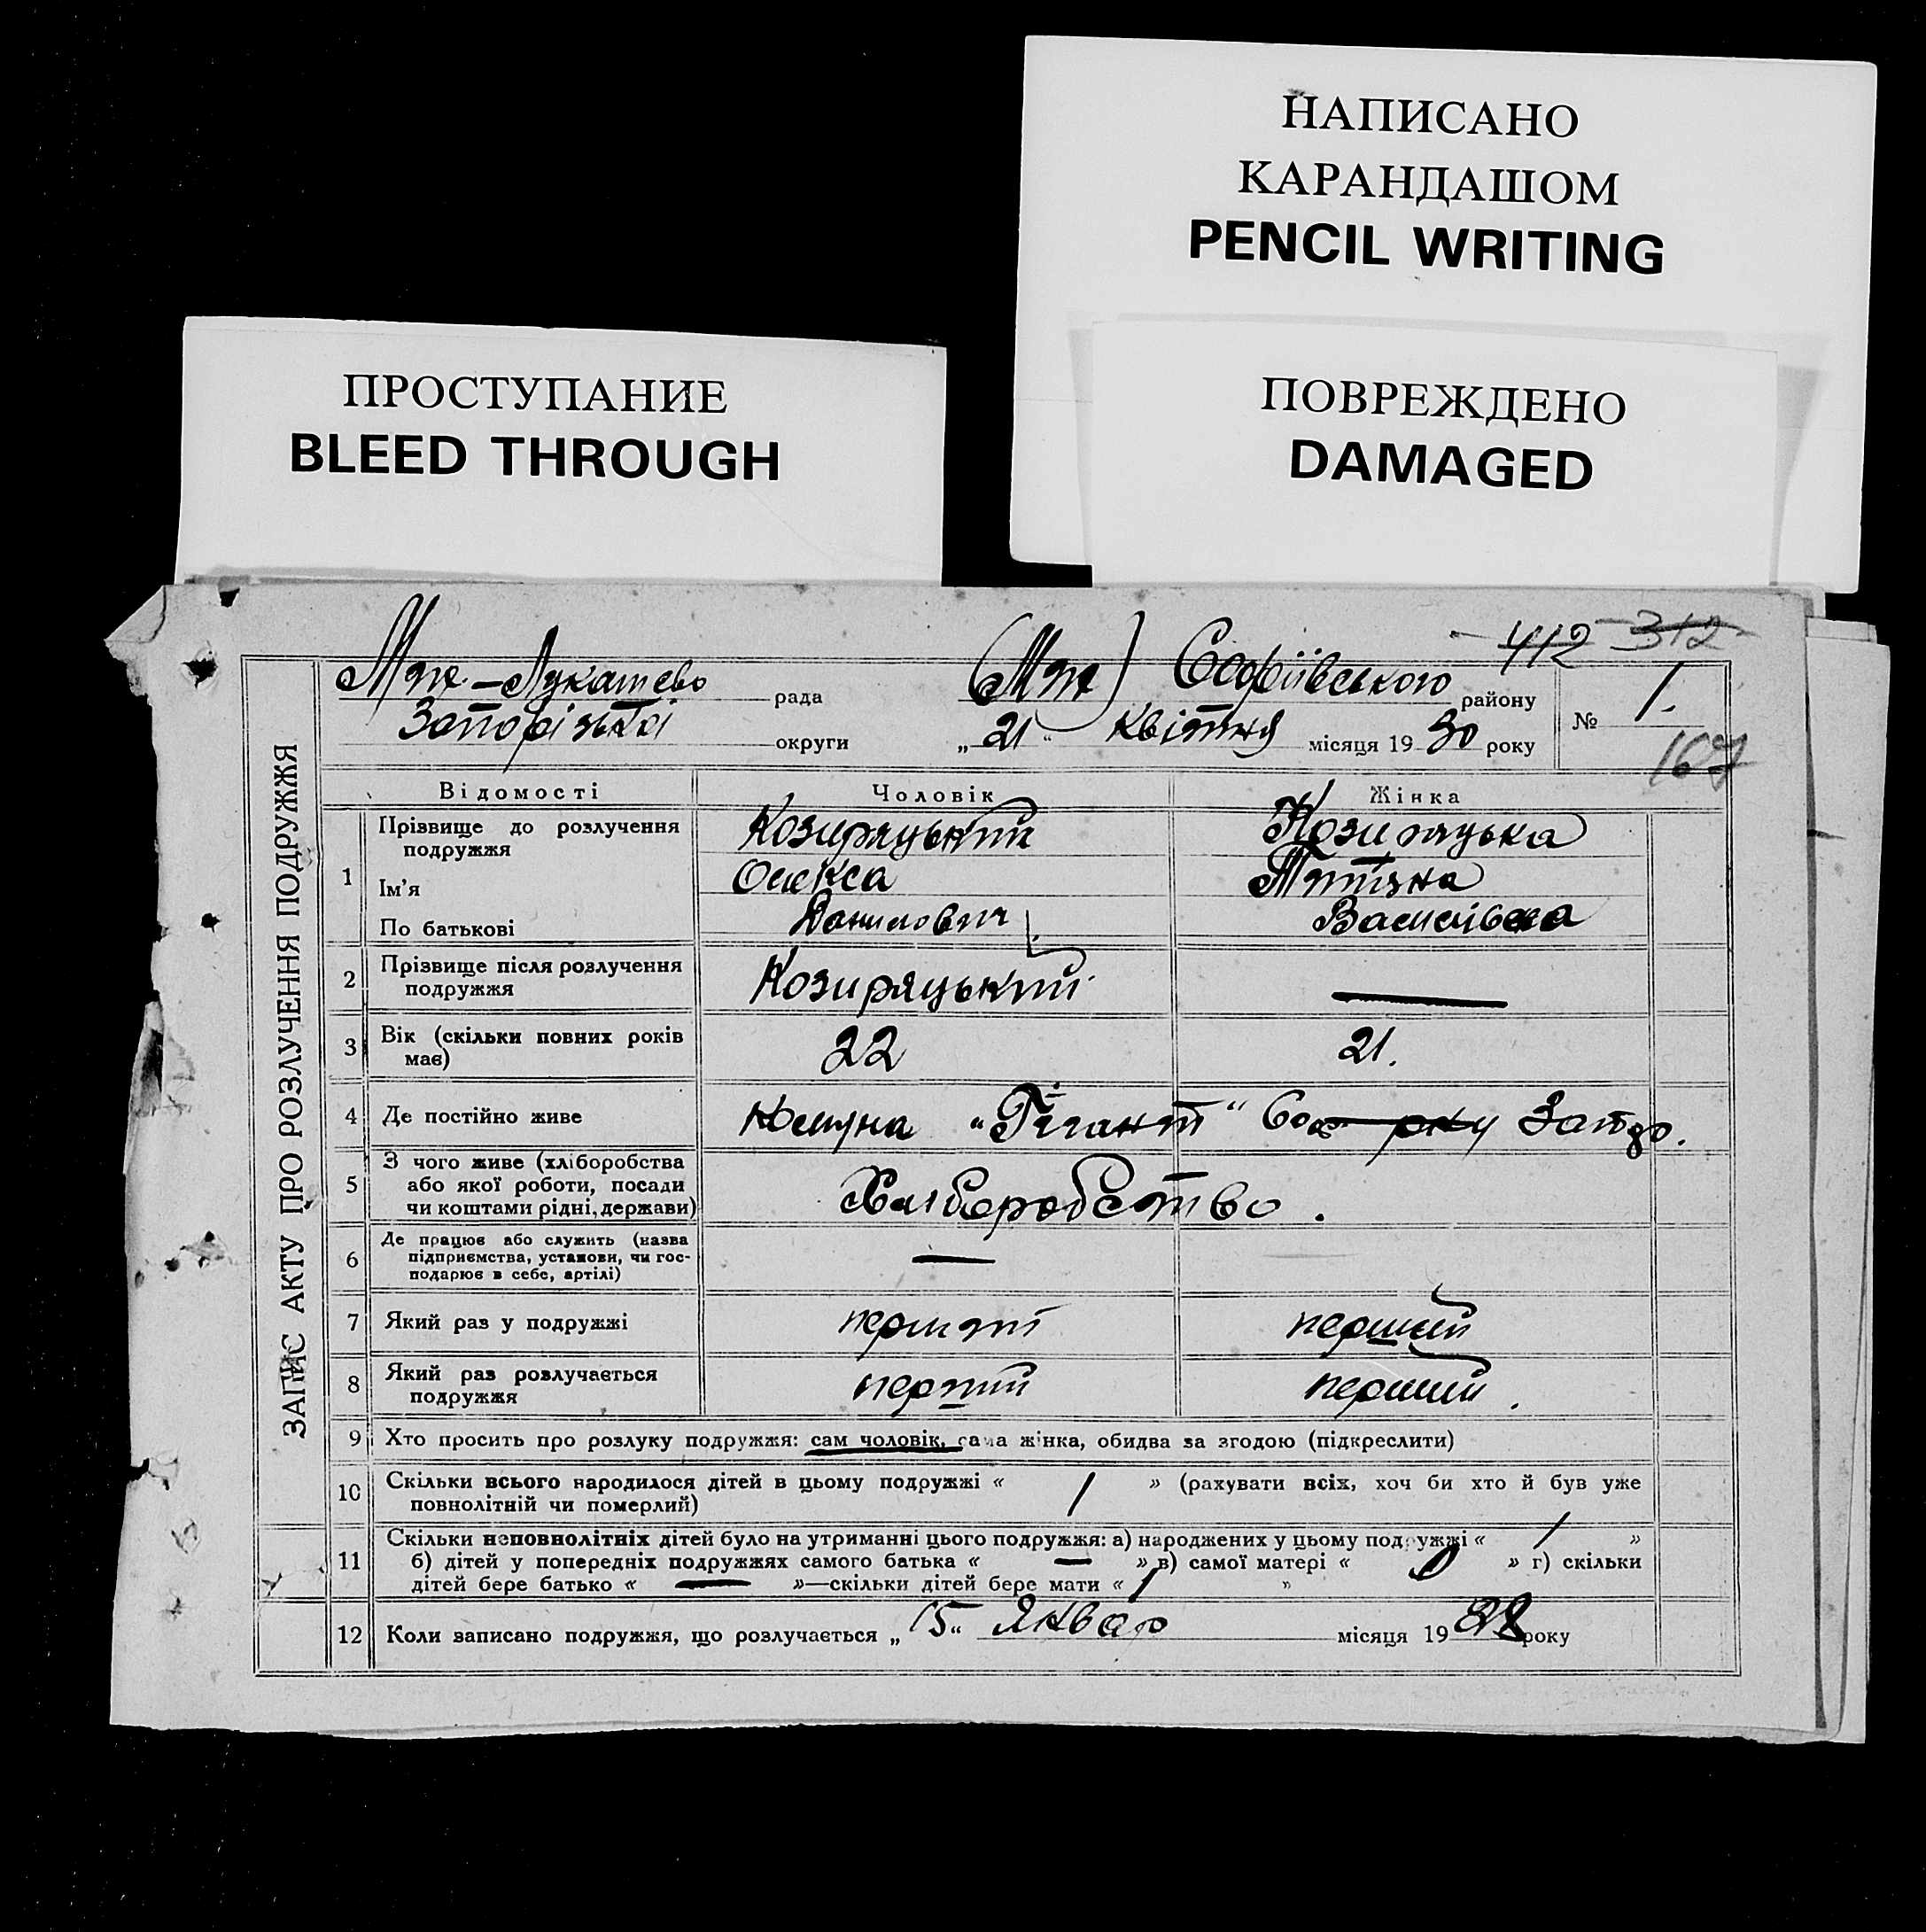 НАПИСАНО
КАРАНДАШОМ
PENCIL WRITING
ПРОСТУПАНИЕ
BLEED THROUGH
ПОВРЕЖДЕНО
DAMAGED
412 312
Лукашево рада Софіївського району № 1.
Запорізької округи „21“ квітня місяця 1930 року
167
ЗАПИС АКТУ ПРО РОЗЛУЧЕННЯ ПОДРУЖЖЯ
Відомості Чоловік Жінка
1 Прізвище до розлучення подружжя Козиряцький Козиряцька
Ім'я Олекса Тетяна
По батькові Данилович Василівна
2 Прізвище після розлучення подружжя Козиряцький —
3 Вік (скільки повних років має) 22 21.
4 Де постійно живе Комуна „Гігант“
5 З чого живе (хліборобства або якої роботи, посади чи коштами рідні, держави) Хліборобство.
6 Де працює або служить (назва підприємства, установи, чи господарює в себе, артілі) —
7 Який раз у подружжі перший перший
8 Який раз розлучається подружжя перший перший.
9 Хто просить про розлуку подружжя: сам чоловік, сама жінка, обидва за згодою (підкреслити)
10 Скільки всього народилося дітей в цьому подружжі « 1 » (рахувати всіх, хоч би хто й був уже
повнолітній чи померлий)
11 Скільки неповнолітніх дітей було на утриманні цього подружжя: а) народжених у цьому подружжі « 1 »
б) дітей у попередніх подружжях самого батька « — » в) самої матері « 0 » г) скільки
дітей бере батько « — »—скільки дітей бере мати « 1 »
12 Коли записано подружжя, що розлучається „15“ Январ місяця 1928 року